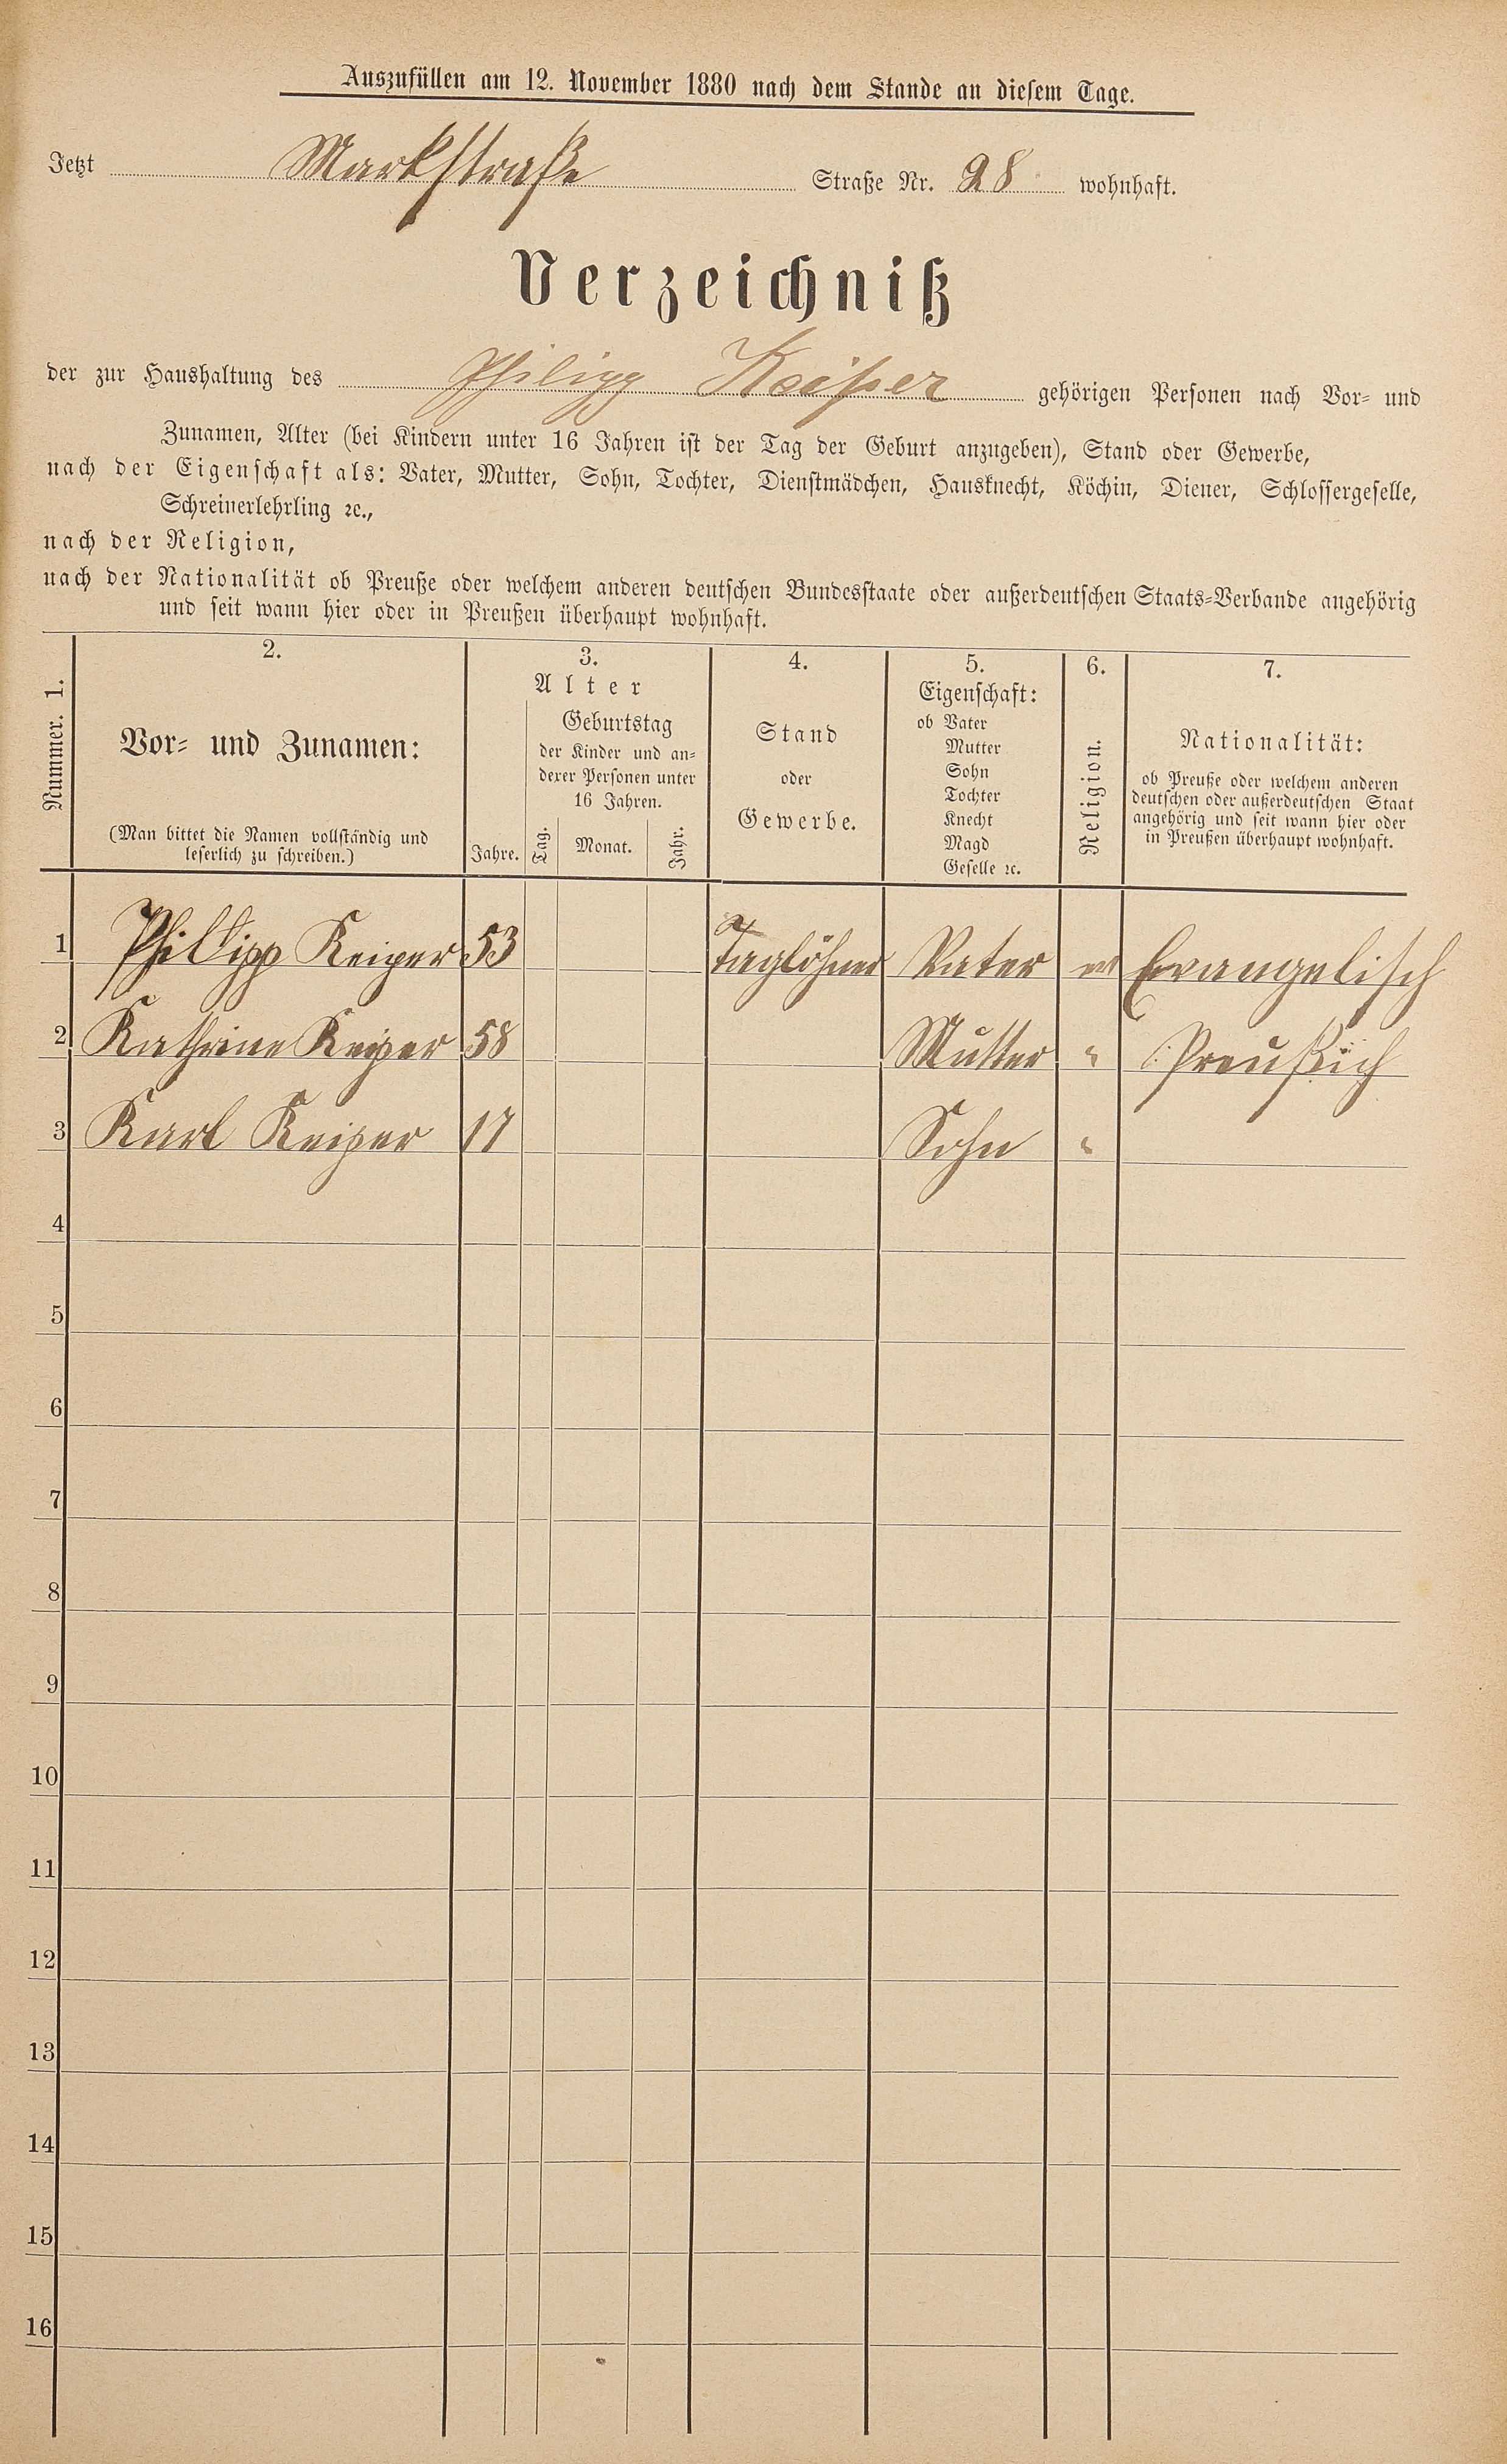 Auszufüllen am 12. November 1880 nach dem Stande an diesem Tage.
Jetzt Markstraße Straße Nr. 28 wohnhaft.
Verzeichniß
der zur Haushaltung des Philipp Keiper gehörigen Personen nach Vor- und
Zunamen, Alter (bei Kindern unter 16 Jahren ist der Tag der Geburt anzugeben), Stand oder Gewerbe,
nach der Eigenschaft als: Vater, Mutter, Sohn, Tochter, Dienstmädchen, Hausknecht, Köchin, Diener, Schlossergeselle,
Schreinerlehrling ꝛc.,
nach der Religion,
nach der Nationalität ob Preuße oder welchem anderen deutschen Bundesstaate oder außerdeutschen Staats-Verbande angehörig
und seit wann hier oder in Preußen überhaupt wohnhaft.
Nummer. 1.
2.
Vor- und Zunamen:
(Man bittet die Namen vollständig und
leserlich zu schreiben.)
3.
Alter
Jahre.
Geburtstag
der Kinder und an-
derer Personen unter
16 Jahren.
Tag. Monat. Jahr.
4.
Stand
oder
Gewerbe.
5.
Eigenschaft:
ob Vater
Mutter
Sohn
Tochter
Knecht
Magd
Geselle ꝛc.
6.
Religion.
7.
Nationalität:
ob Preuße oder welchem anderen
deutschen oder außerdeutschen Staat
angehörig und seit wann hier oder
in Preußen überhaupt wohnhaft.
1 Philipp Keiper 53 Taglöhner Vater Evangelisch
2 Kathrine Keiper 58 Mutter " Preußich
3 Karl Keiper 17 Sohn "
4
5
6
7
8
9
10
11
12
13
14
15
16